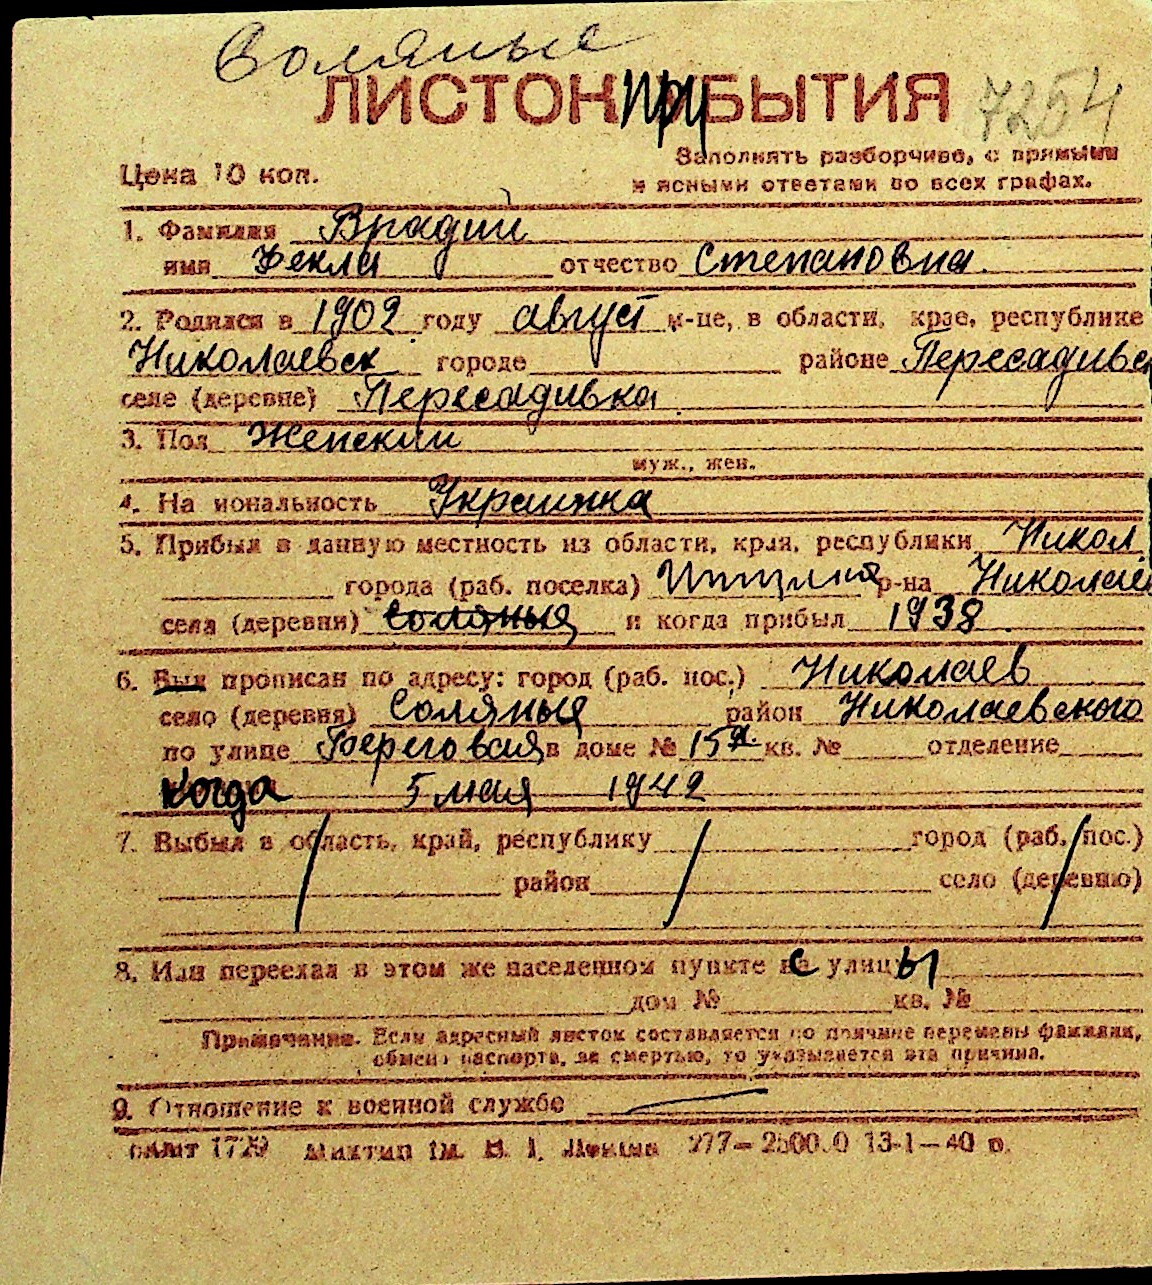 Соляные
ЛИСТОК ПРИБЫТИЯ 7254
Цена 10 коп.
Заполнять разборчиво, с прямыми
и ясными ответами во всех графах.
1. Фамилия Врадий
имя Фекла отчество Степановна
2. Родился в 1902 году август м-це, в области, крае, республике
Николаевск городе районе Пересадивс
селе (деревне) Пересадивка
3. Пол Женский
муж., жен.
4. На иональность Украинка
5. Прибыл в данную местность из области, края, республики Никол.
города (раб. поселка) р-на Николаев
села (деревни) Соляные и когда прибыл 1938
6. Был прописан по адресу: город (раб. пос.) Николаев
село (деревня) Соляные район Николаевского
по улице Береговая в доме № 15а кв. № отделение
когда 5 мая 1942
7. Выбыл в область, край, республику город (раб. пос.)
район село (деревню)
8. Или переехал в этом же населенном пункте с улицы
дом № кв. №
Примечание. Если адресный листок составляется по причине перемены фамилии,
обмена паспорта, за смертью, то указывается эта причина.
9. Отношение к военной службе
1729 Миктип ім. В. І. Леніна 277— 13-1—40 р.